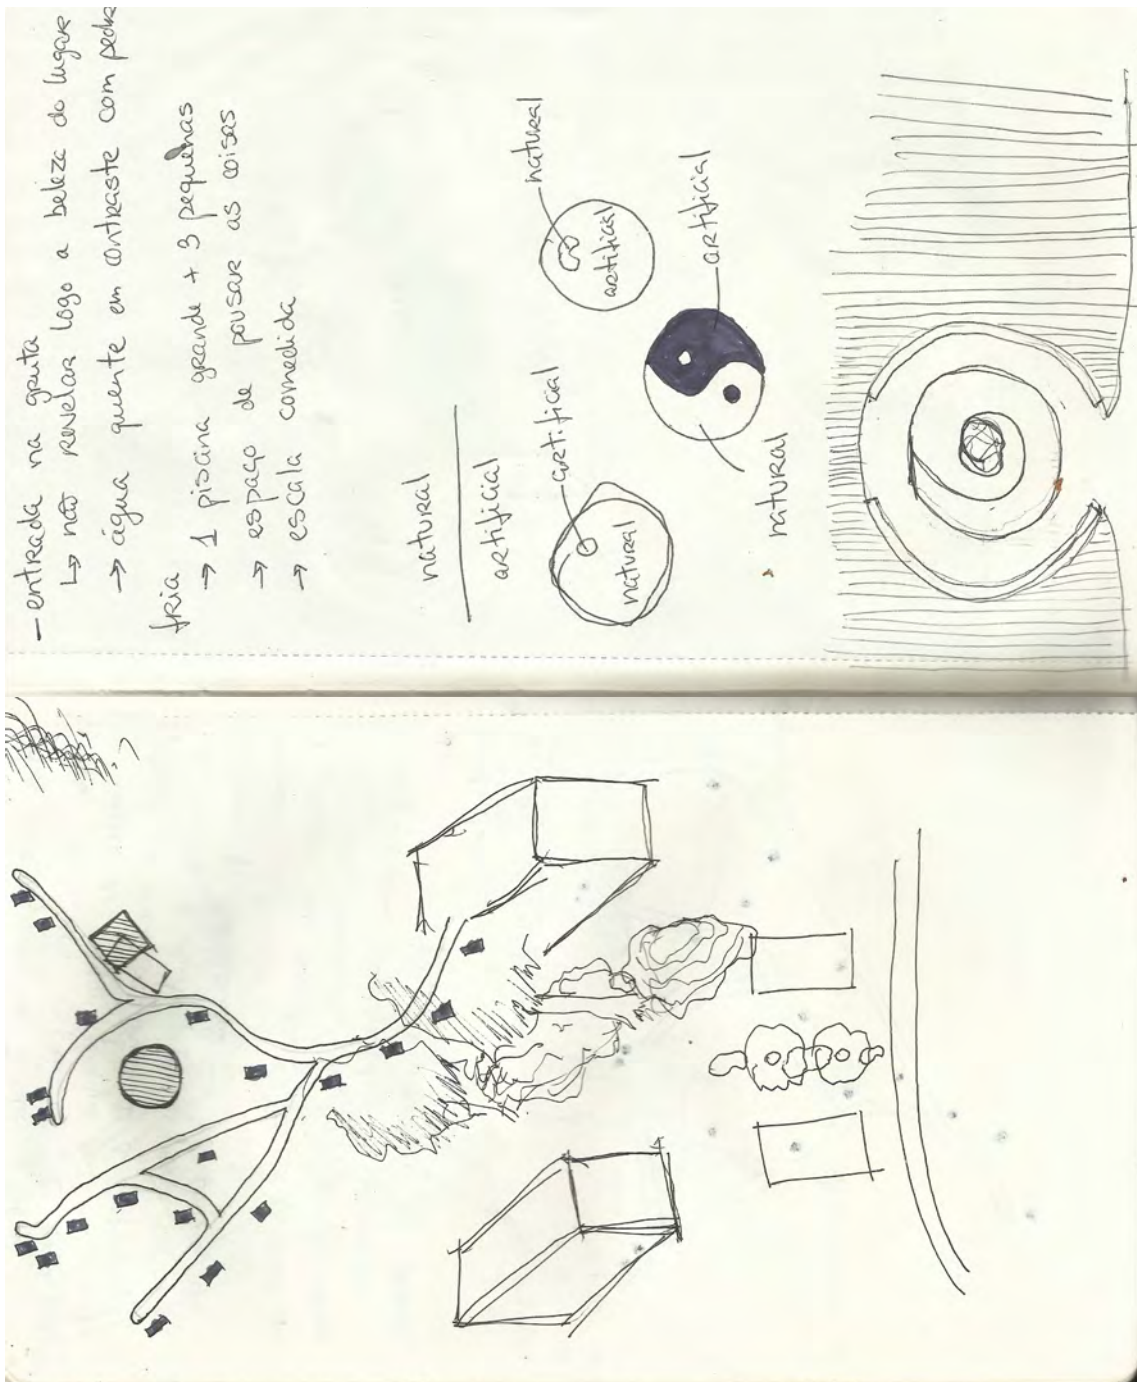 - entrada na gruta
↳ não revelar logo a beleza do lugar
→ água quente em contraste com pedra
fria
→ 1 piscina grande + 3 pequenas
→ espaço de pousar as coisas
→ escala comedida
natural
artificial
artificial
natural
natural
artificial
artificial
natural